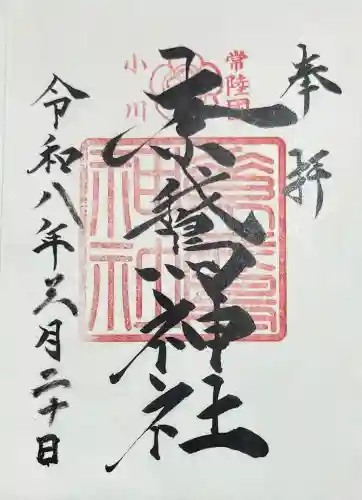 奉拝
常陸国
小川
素鵞神社
素鵞神社
令和八年三月二十日